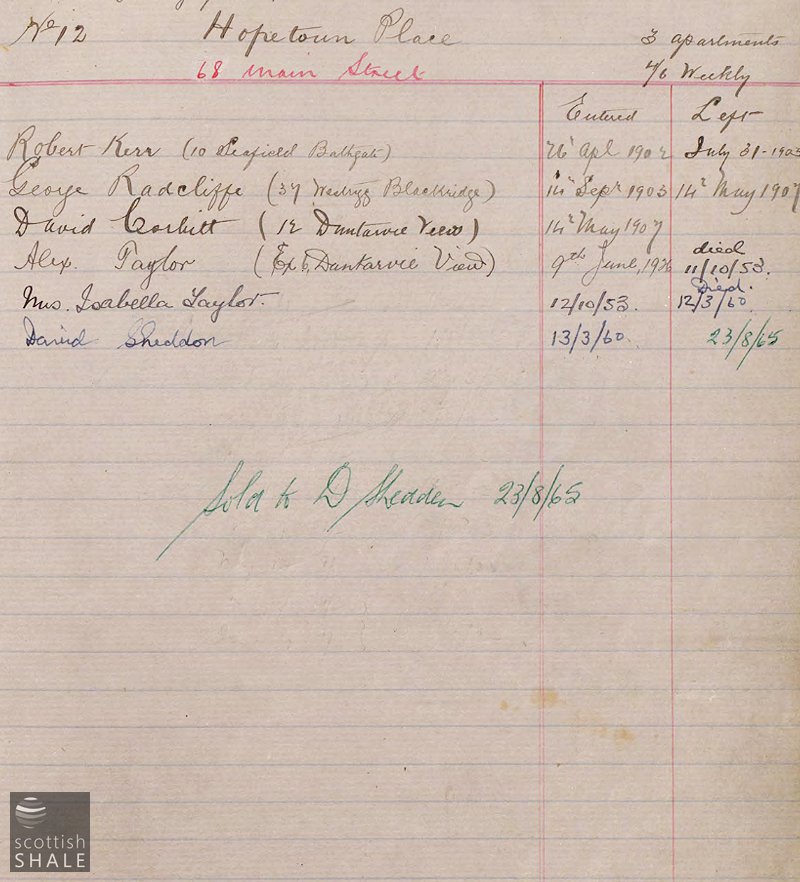 No 12 Hopetoun Place 3 apartments
68 Main Street 4/6 Weekly
Entered Left
Robert Kerr (10 Seafield Bathgate) 26" Apl 1902 July 31-1903
George Radcliffe (37 Westrigg Blackridge) 14" Sept 1903 14" May 1907
David Corbitt (12 Duntarvie View) 14" May 1907
Alex. Taylor (Ex 6, Duntarvie View) 9th June, 1936 died 11/10/53.
Mrs. Isabella Taylor. 12/10/53. Died. 12/3/60
David Sheddon 13/3/60. 23/8/65
Sold to D Shedden 23/8/65
scottish
SHALE